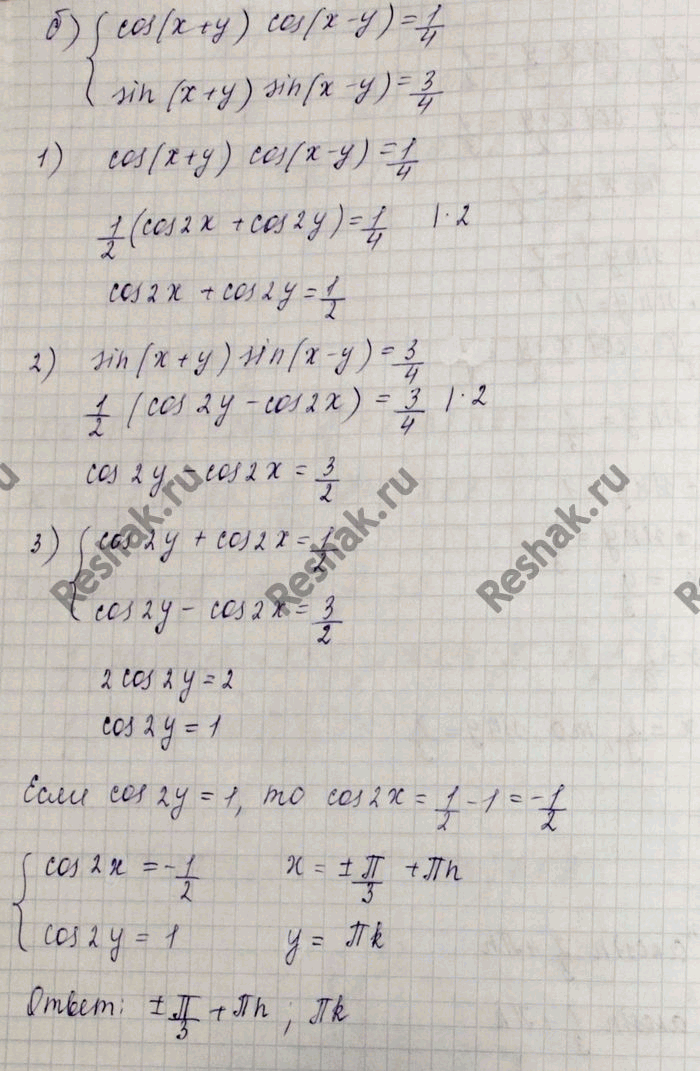 б) { cos(x+y) cos(x-y)=1/4
sin(x+y) sin(x-y)=3/4
1) cos(x+y) cos(x-y)=1/4
1/2(cos2x+cos2y)=1/4 |·2
cos2x+cos2y=1/2
2) sin(x+y) sin(x-y)=3/4
1/2(cos2y-cos2x)=3/4 |·2
cos2y-cos2x=3/2
3) { cos2y+cos2x=1/2
cos2y-cos2x=3/2
2cos2y=2
cos2y=1
Если cos2y=1, то cos2x=1/2-1=-1/2
{ cos2x=-1/2 x=±π/3+πn
cos2y=1 y=πk
Ответ: ±π/3+πn; πk
Reshak.ru Reshak.ru Reshak.ru